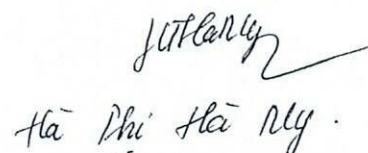 Hà Thị Hà My.